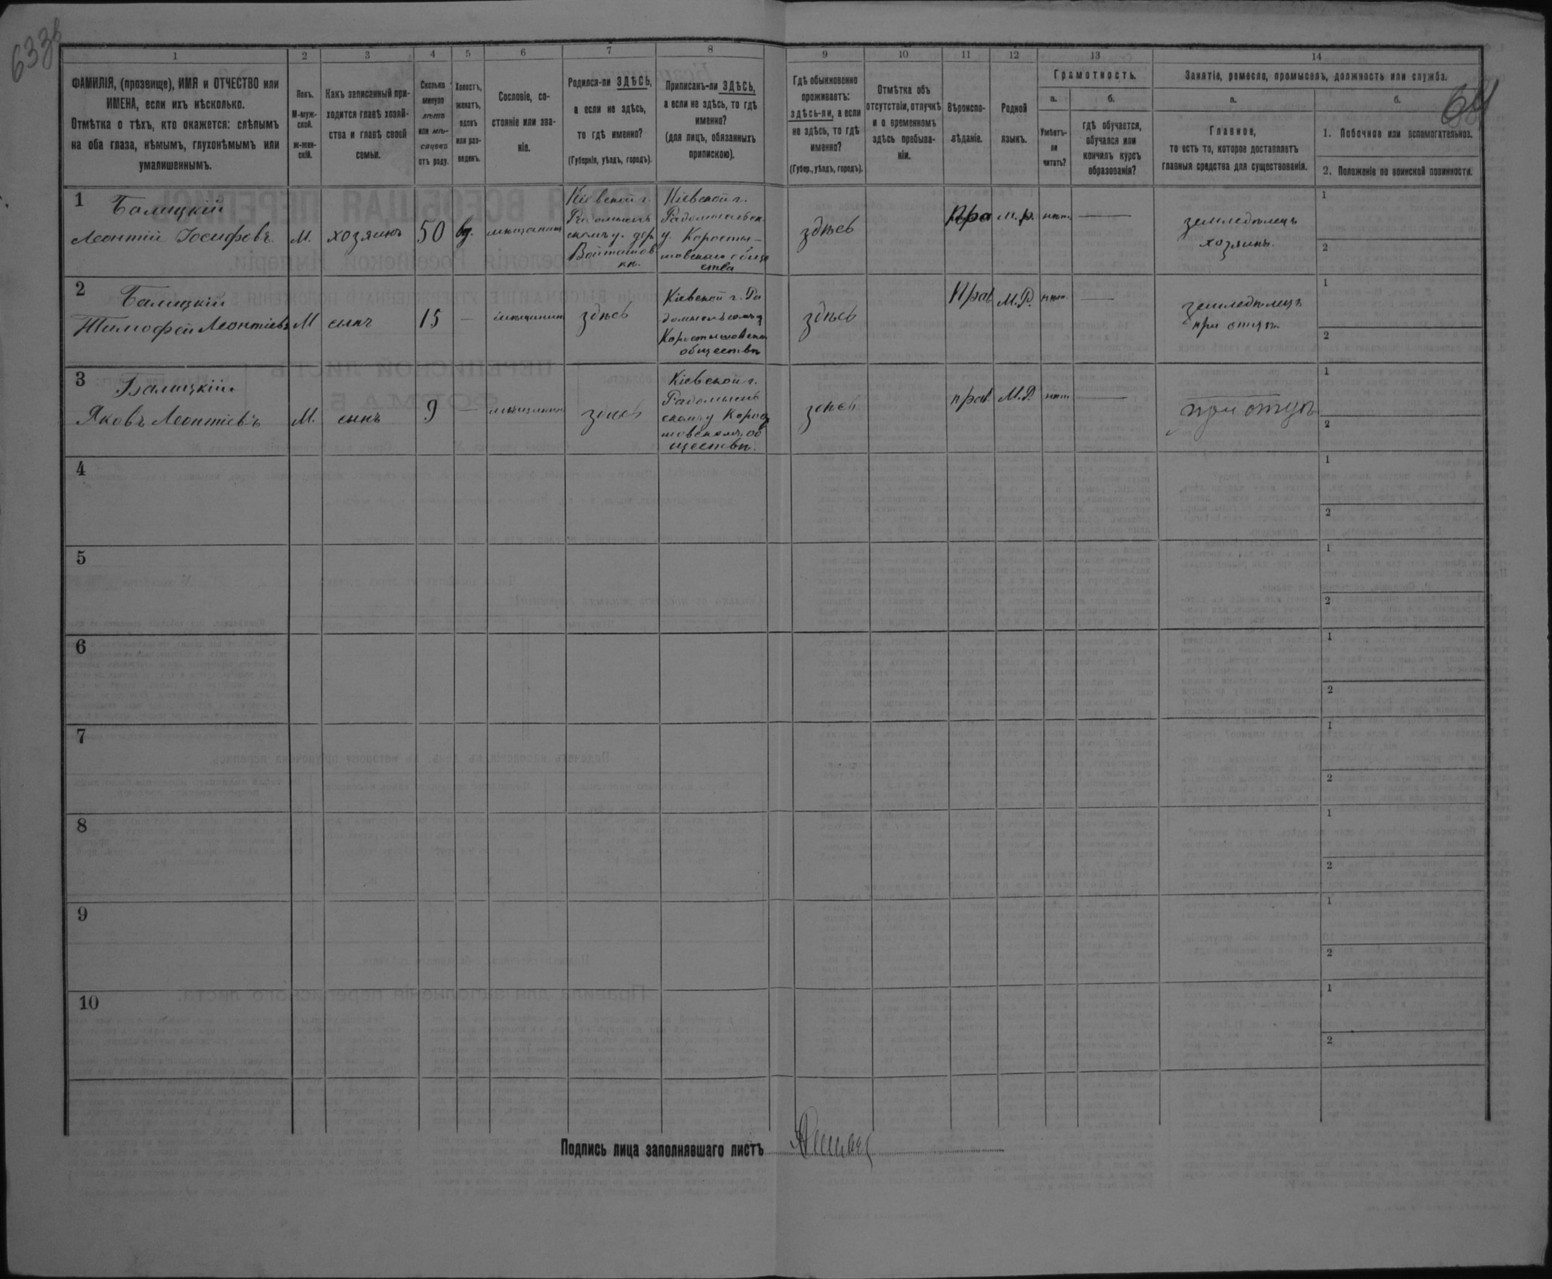 1
2
3
4
5
6
7
8
9
10
11
12
13
14
ФАМИЛІЯ, (прозвище), ИМЯ и ОТЧЕСТВО или
ИМЕНА, если ихъ нѣсколько.
Отмѣтка о тѣхъ, кто окажется: слѣпымъ
на оба глаза, нѣмымъ, глухонѣмымъ или
умалишеннымъ.
Полъ.
М-муж-
ской.
ж-жен-
скій.
Какъ записанный при-
ходится главѣ хозяй-
ства и главѣ своей
семьи.
Сколько
минуло
лѣтъ
или мѣ-
сяцевъ
отъ роду.
Холостъ,
женатъ,
вдовъ
или раз-
веденъ.
Сословіе, со-
стояніе или зва-
ніе.
Родился-ли ЗДѢСЬ,
а если не здѣсь,
то гдѣ именно?
(Губернія, уѣздъ, городъ).
Приписанъ-ли ЗДѢСЬ,
а если не здѣсь, то гдѣ
именно?
(для лицъ, обязанныхъ
припискою).
Гдѣ обыкновенно
проживаетъ:
здѣсь-ли, а если
не здѣсь, то гдѣ
именно?
(Губер., уѣздъ, городъ).
Отмѣтка объ
отсутствіи, отлучкѣ
и о временномъ
здѣсь пребыва-
ніи.
Вѣроиспо-
вѣданіе.
Родной
языкъ.
Грамотность.
а.
Умѣетъ-
ли
читать?
б.
гдѣ обучается,
обучался или
кончилъ курсъ
образованія?
Занятіе, ремесло, промыселъ, должность или служба.
а.
Главное,
то есть то, которое доставляетъ
главныя средства для существованія.
б.
1. Побочное или вспомогательное.
2. Положеніе по воинской повинности.
1
Балицкій
Леонтій Іосифовъ
М.
хозяинъ
50
вд.
мѣщанинъ
Кіевской г.
Кіевской г.
здѣсь
Пра
м.р.
нѣт.
земледѣлецъ
хозяинъ.
1
2
2
Балицкій
Тимофей Леонтіевъ
М
сынъ
15
мѣщанинъ
здѣсь
Кіевской г. Ра
домысльскому
Коростышовском
обществѣ
здѣсь
Прав
М.Р.
нѣт.
земледѣлецъ
при отцѣ.
1
2
3
Балицкій
Яковъ Леонтіевъ
М.
сынъ
9
мѣщанинъ
здѣсь
Кіевской г.
Радомысль
ществѣ.
здѣсь
прав
М.Р.
нѣт.
при отцѣ
1
2
4
1
2
5
1
2
6
1
2
7
1
2
8
1
2
9
1
2
10
1
2
Подпись лица заполнявшаго листъ